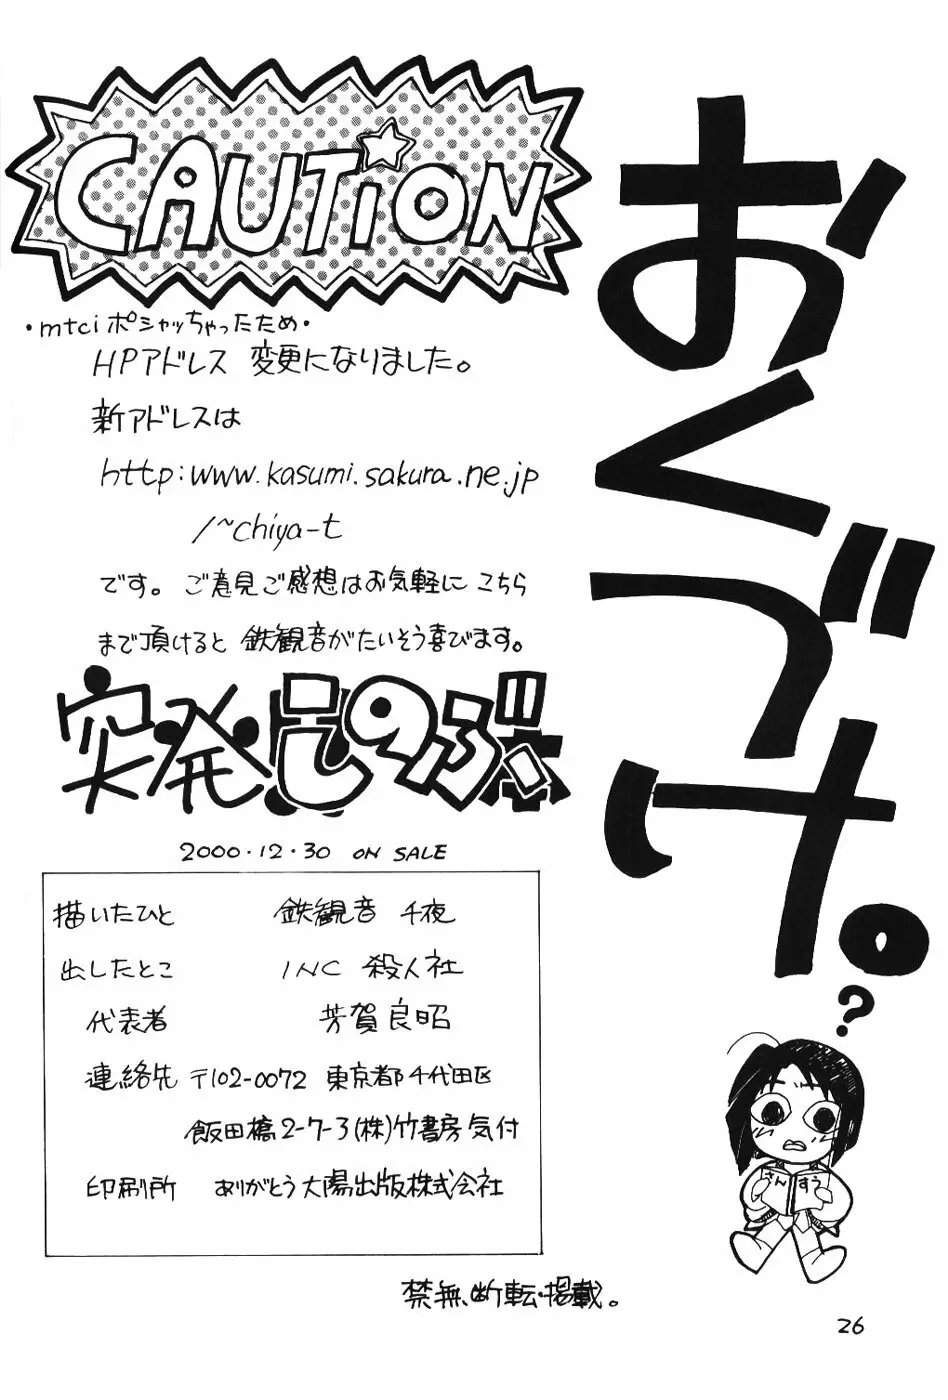 おくづけ。
CAUTION
・mtciポシャッちゃったため・
HPアドレス 変更になりました。
新アドレスは
http:www.kasumi.sakura.ne.jp
/~chiya-t
です。ご意見ご感想はお気軽に こちら
まで頂けると 鉄観音がたいそう喜びます。
突発しのぶ本
2000・12・30 ON SALE
描いたひと 鉄観音 千夜
出したとこ INC 殺人社
代表者 芳賀良昭
連絡先 〒102-0072 東京都千代田区
飯田橋2-7-3(株)竹書房気付
印刷所 ありがとう大陽出版株式会社
?
さんすう
禁無断転・掲載。
26